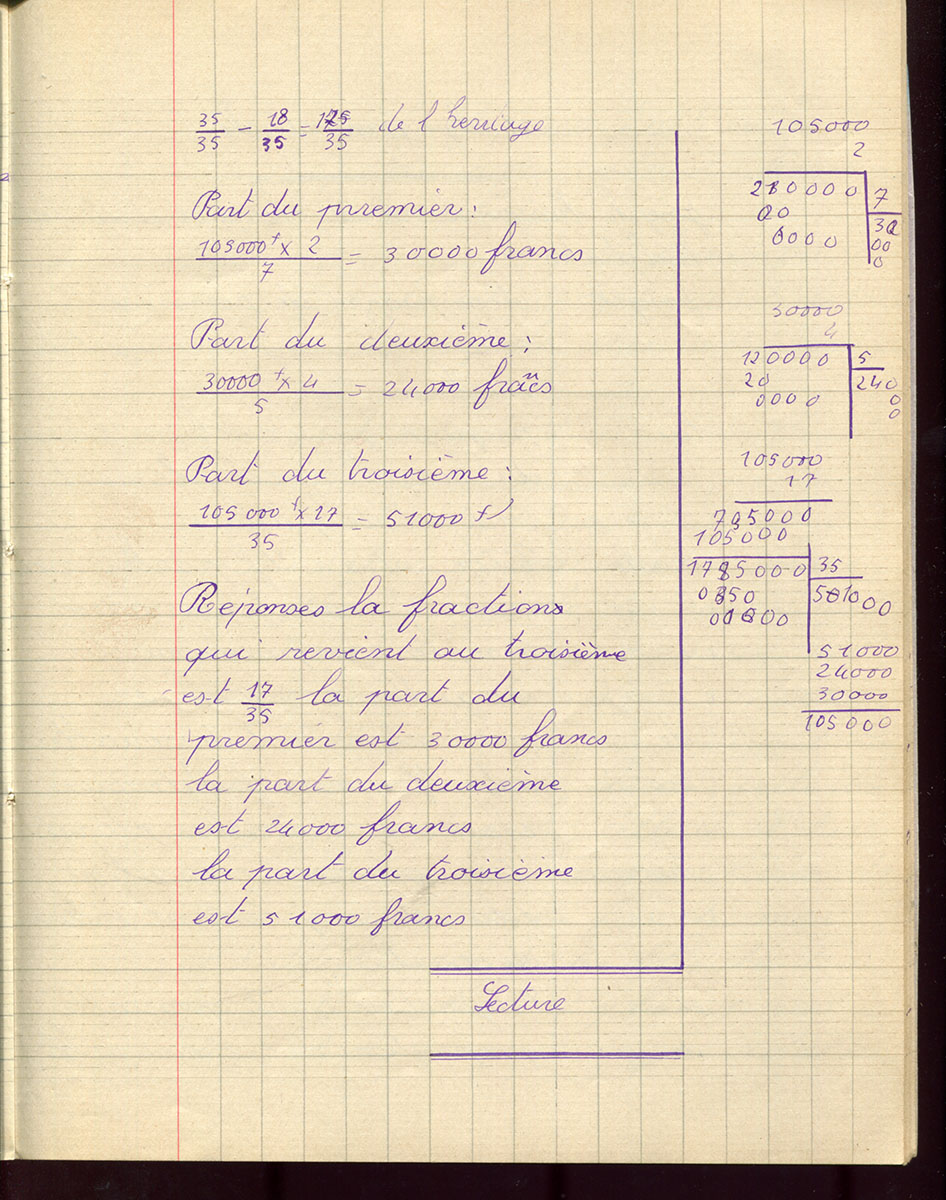 35/35 - 18/35 = 17/35 de l'herriage
Part du premier :
105000f x 2 / 7 = 30000 francs
Part du deuxième :
30000f x 4 / 5 = 24000 francs
Part du troisième :
105000f x 17 / 35 = 51000 f
Réponses la fractions
qui revient au troisième
est 17/35 la part du
premier est 30000 francs
la part du deuxième
est 24000 francs
la part du troisième
est 51000 francs
Lecture
105000
2
210000 7
00
0000
00
0
30000
4
120000 5
20 240
0000 0
0
105000
17
735000
105000
1785000 35
0350
51000
24000
30000
105000